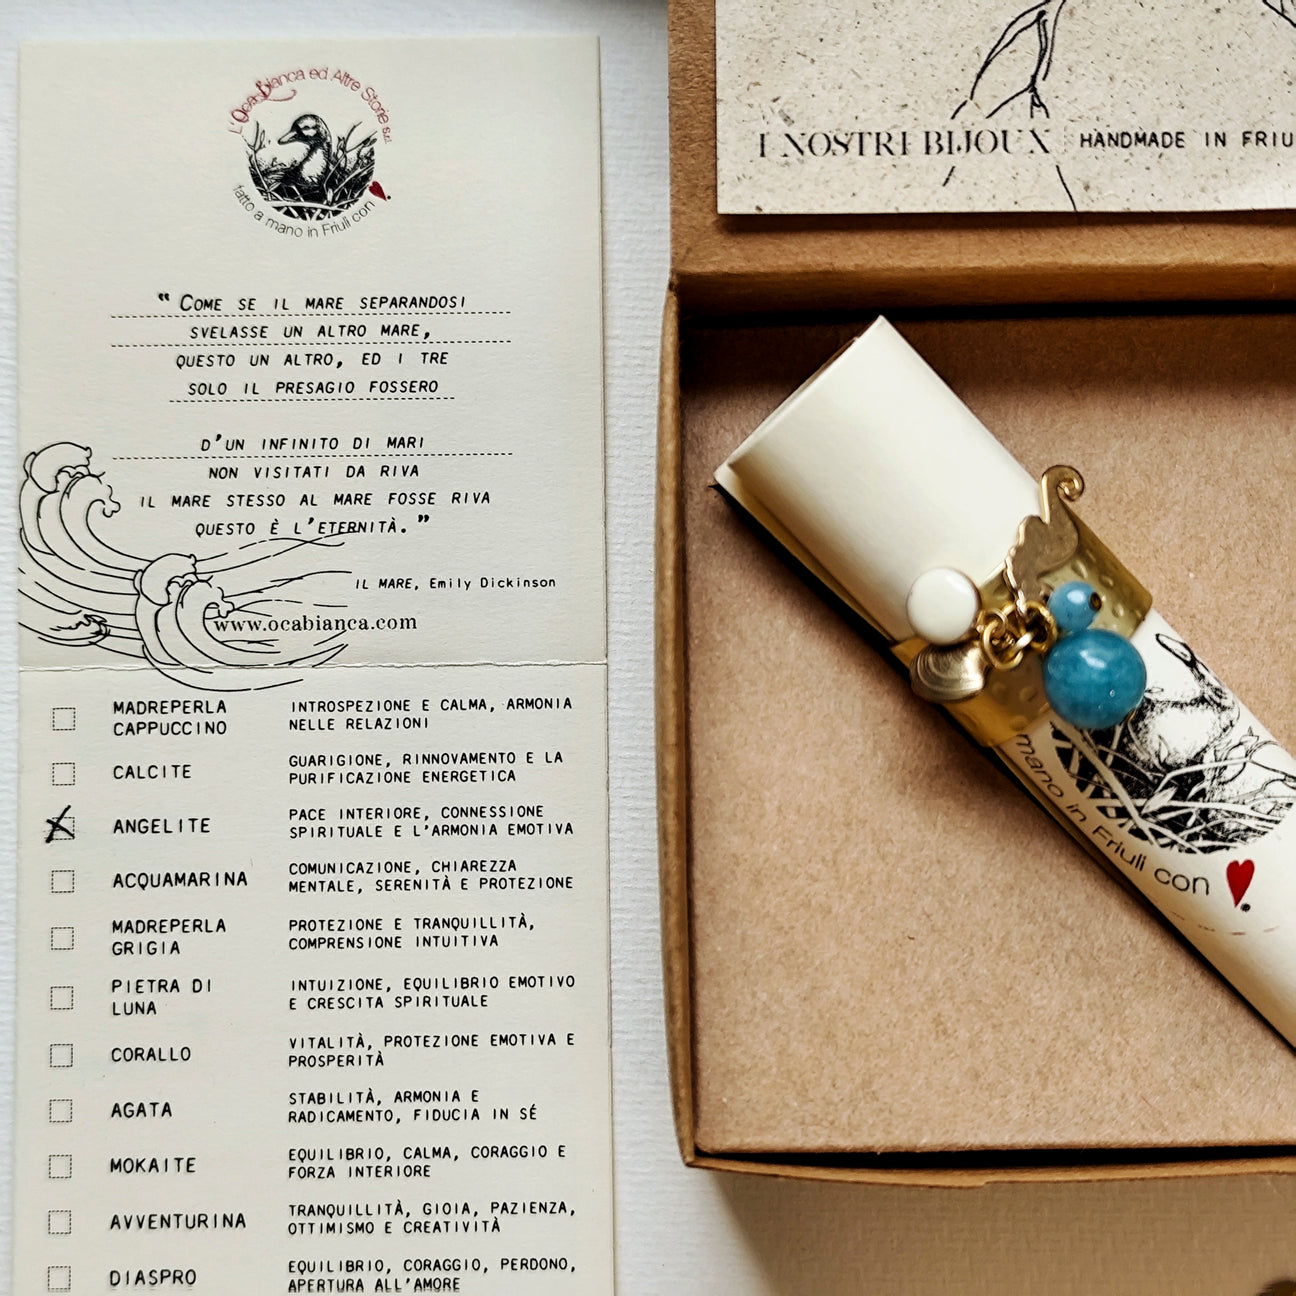 L'OcaBianca ed Altre Storie s.r.l.
fatto a mano in Friuli con
"COME SE IL MARE SEPARANDOSI
SVELASSE UN ALTRO MARE,
QUESTO UN ALTRO, ED I TRE
SOLO IL PRESAGIO FOSSERO
D'UN INFINITO DI MARI
NON VISITATI DA RIVA
IL MARE STESSO AL MARE FOSSE RIVA
QUESTO È L'ETERNITÀ."
IL MARE, Emily Dickinson
www.ocabianca.com
MADREPERLA
CAPPUCCINO
INTROSPEZIONE E CALMA, ARMONIA
NELLE RELAZIONI
CALCITE
GUARIGIONE, RINNOVAMENTO E LA
PURIFICAZIONE ENERGETICA
ANGELITE
PACE INTERIORE, CONNESSIONE
SPIRITUALE E L'ARMONIA EMOTIVA
ACQUAMARINA
COMUNICAZIONE, CHIAREZZA
MENTALE, SERENITÀ E PROTEZIONE
MADREPERLA
GRIGIA
PROTEZIONE E TRANQUILLITÀ,
COMPRENSIONE INTUITIVA
PIETRA DI
LUNA
INTUIZIONE, EQUILIBRIO EMOTIVO
E CRESCITA SPIRITUALE
CORALLO
VITALITÀ, PROTEZIONE EMOTIVA E
PROSPERITÀ
AGATA
STABILITÀ, ARMONIA E
RADICAMENTO, FIDUCIA IN SÉ
MOKAITE
EQUILIBRIO, CALMA, CORAGGIO E
FORZA INTERIORE
AVVENTURINA
TRANQUILLITÀ, GIOIA, PAZIENZA,
OTTIMISMO E CREATIVITÀ
DIASPRO
EQUILIBRIO, CORAGGIO, PERDONO,
APERTURA ALL'AMORE
I NOSTRI BIJOUX
HANDMADE IN FRIU
mano in Friuli con